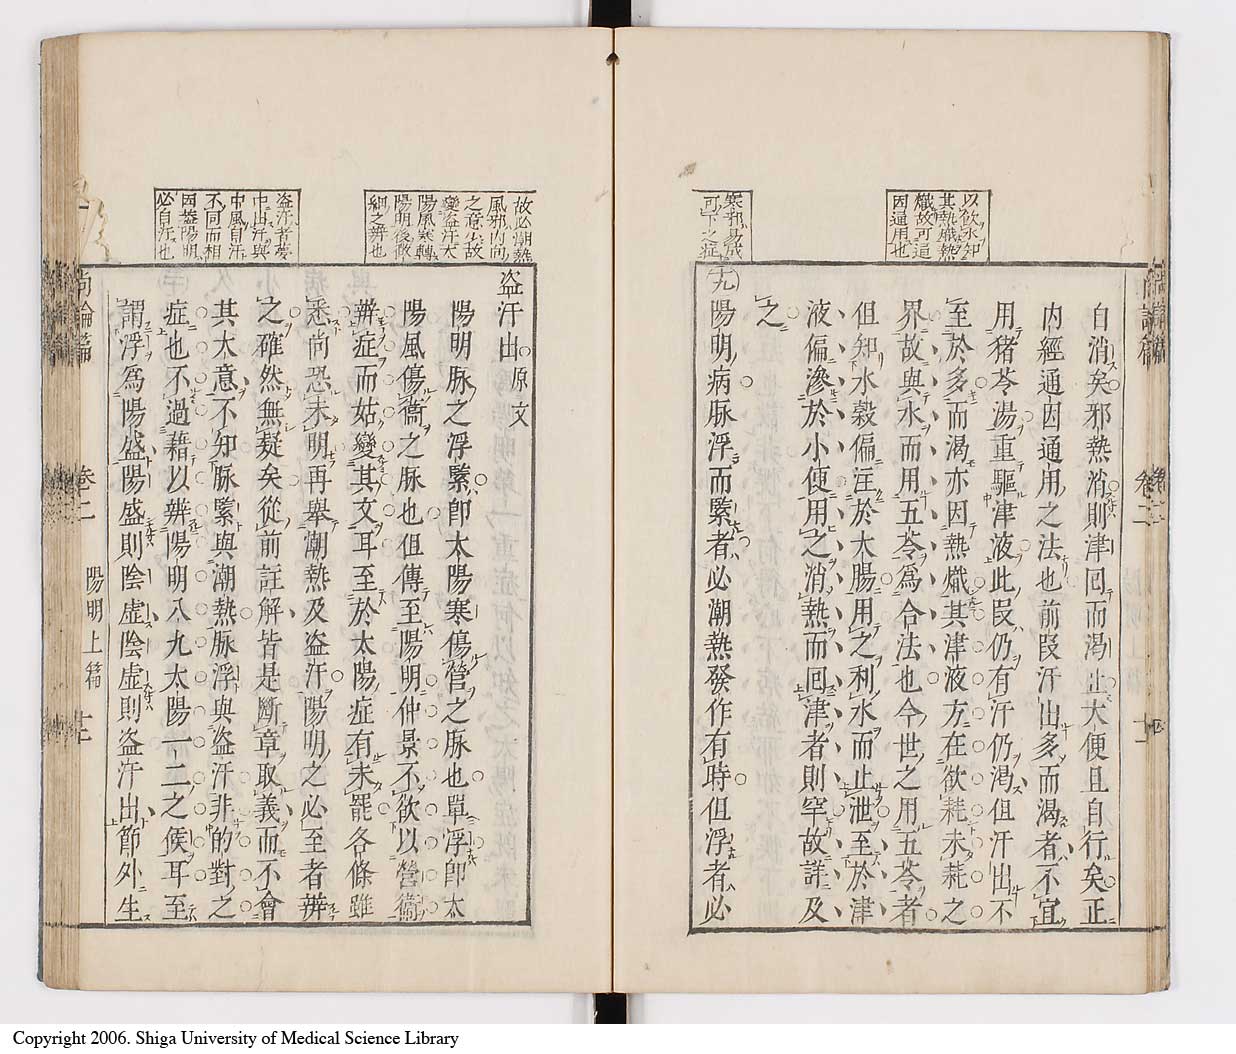 以欲水知
其熱熾熱
熾故可逼
因通用也
自消矣邪熱消則津回而渴止大便且自行矣正
内經通因通用之法也前叚汗出多而渴者不宜
用猪苓湯重驅津液此叚仍有汗仍渴但汗出不
至於多而渴亦因熱熾其津液方在欲耗未耗之
界故與水而用五苓為合法也今世之用五苓者
但知水穀偏注於大腸用之利水而止泄至於津
液偏滲於小便用之消熱而回津者則罕故詳及
之
寒邪易成
可下之症
十九
陽明病脉浮而緊者必潮熱發作有時但浮者必
故必潮熱
風邪内向
之意仏故
變盜汗太
陽風寒轉
陽明後微
細之辨也
盜汗出原文
陽明脉之浮緊即太陽寒傷營之脉也單浮即太
陽風傷衞之脉也但傳至陽明仲景不欲以營衞
辨症而姑變其文耳至於太陽症有未罷各條雖
悉尚恐未明再舉潮熱及盜汗陽明之必至者辨
之確然無疑矣從前註解皆是斷章取義而不會
其大意不知脉緊與潮熱脉浮與盜汗非的對之
症也不過藉以辨陽明八九太陽一二之候耳至
謂浮為陽盛陽盛則陰虛陰虛則盜汗出節外生
盜汗者夢
中出汗與
中風自汗
不同而相
因葢陽明
必自汗也
尚論篇
卷二
陽明上篇
十二